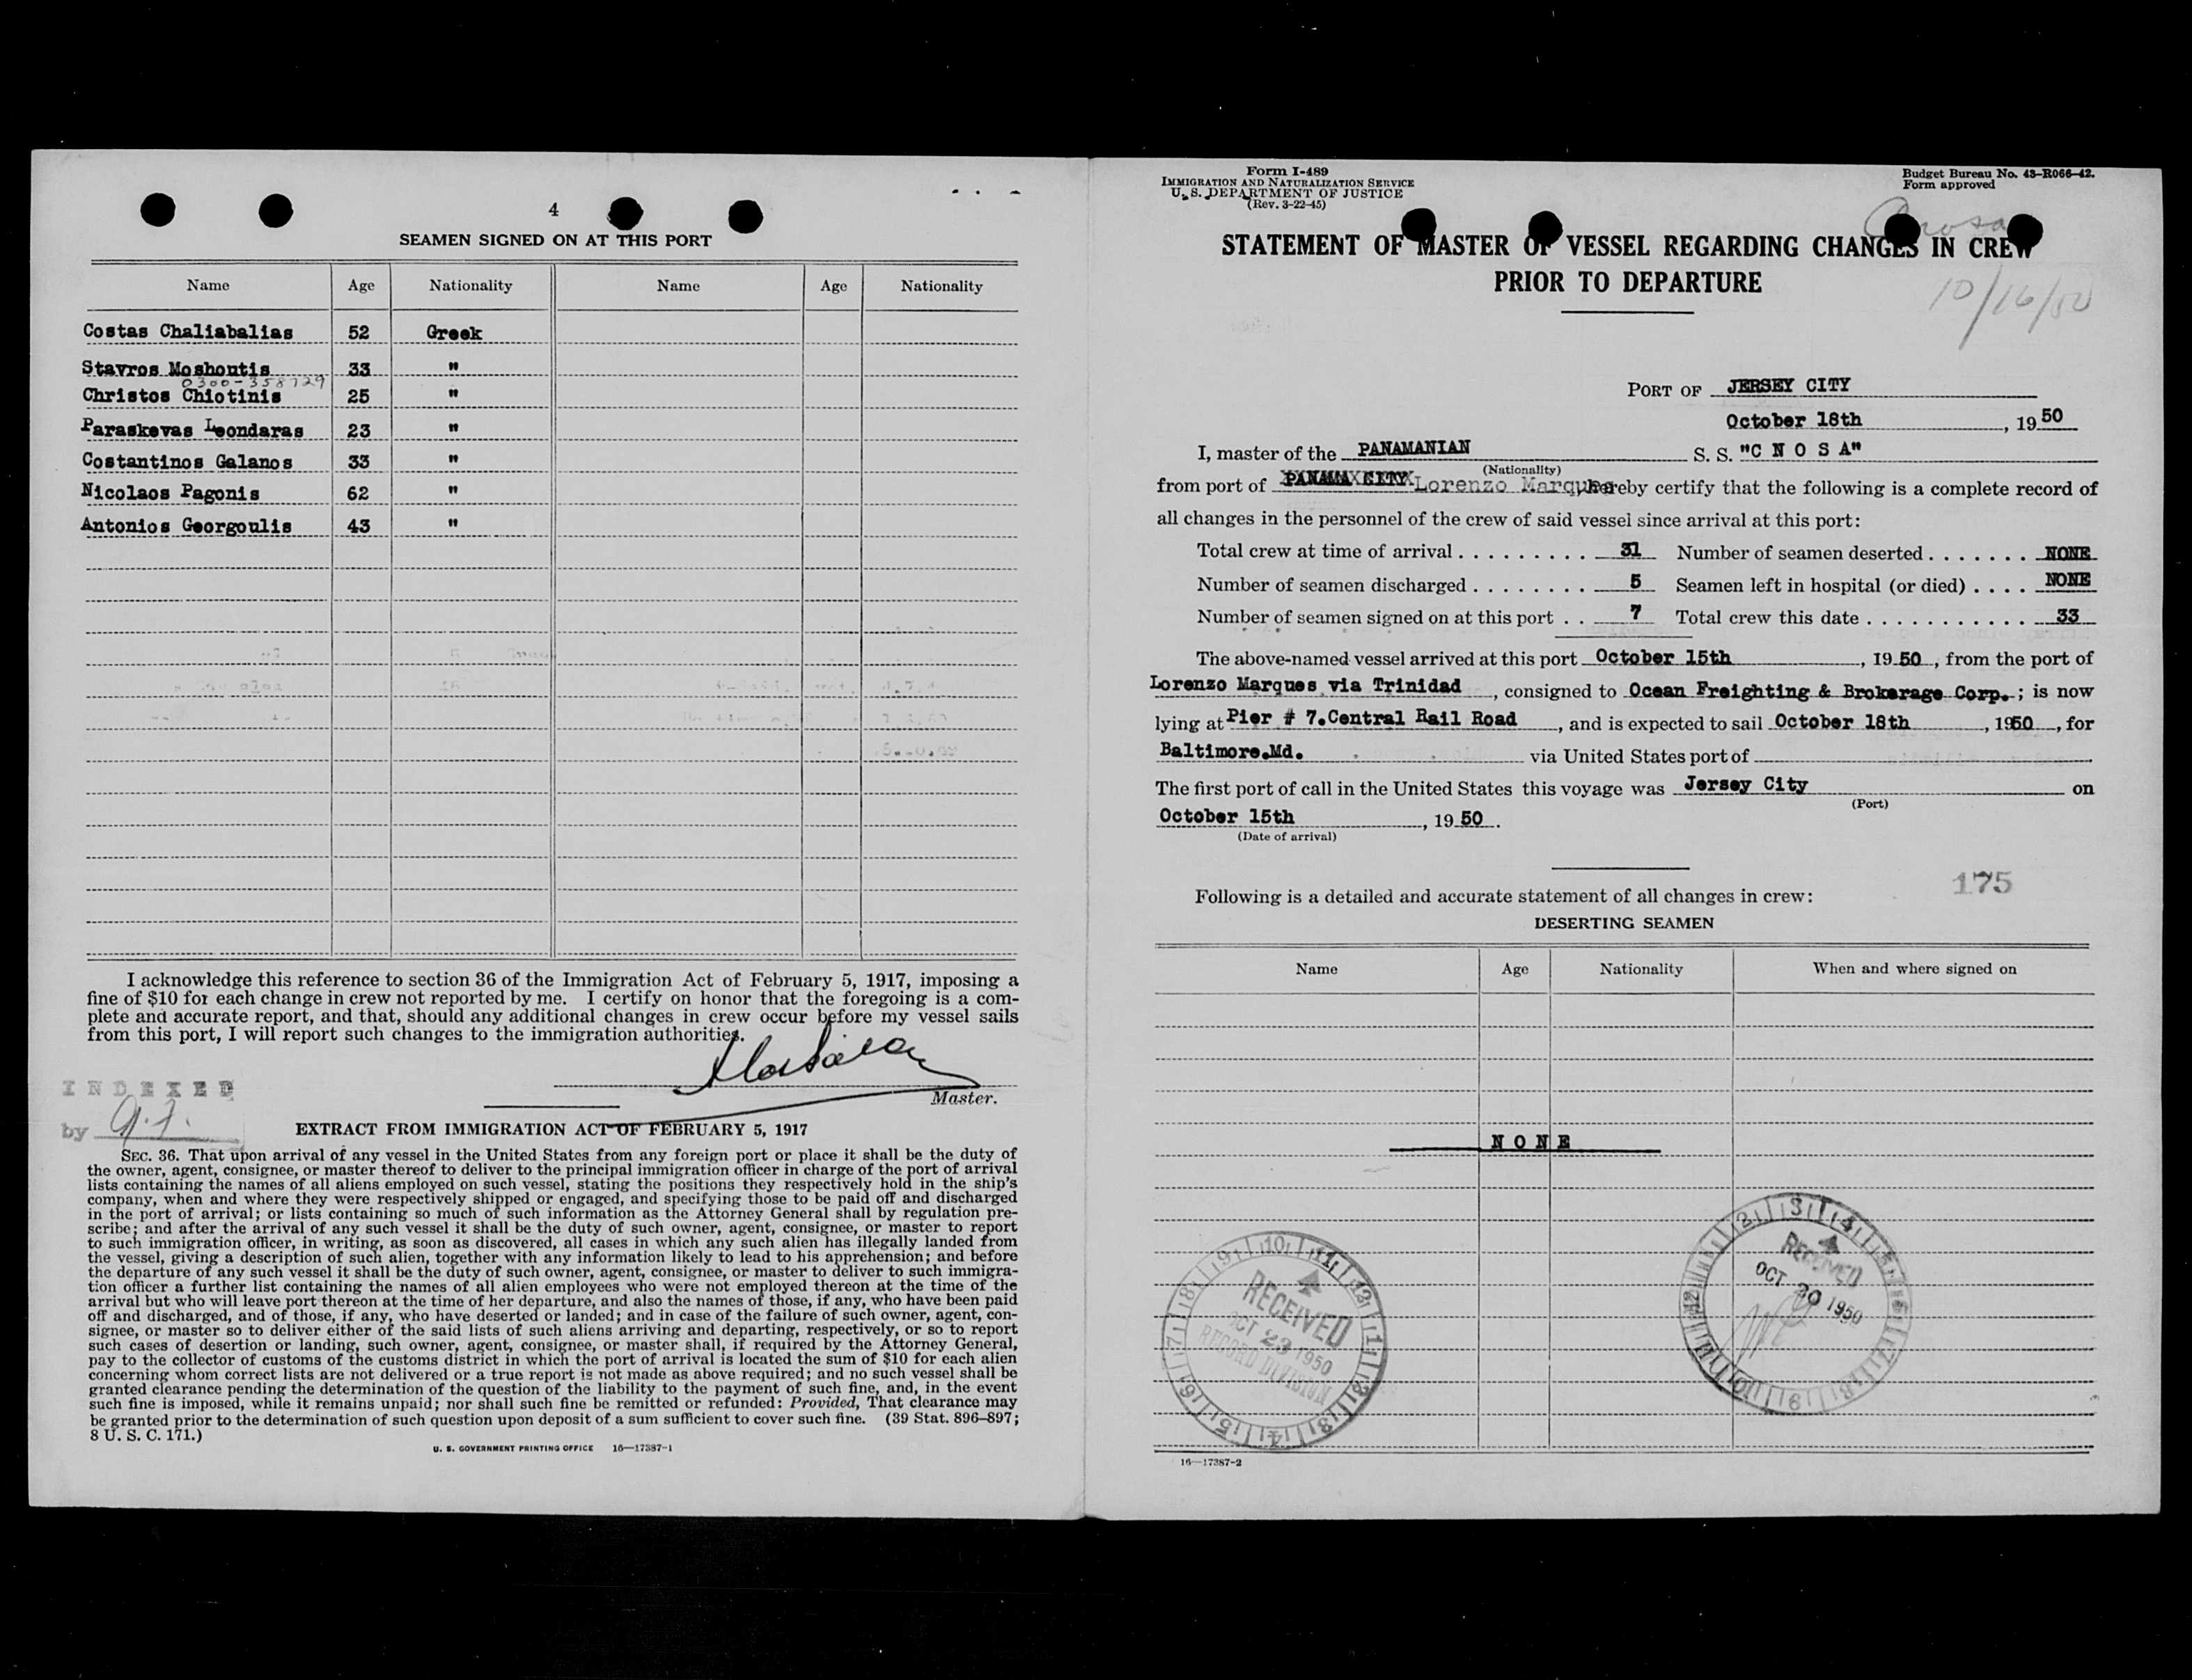 4
SEAMEN SIGNED ON AT THIS PORT
Name Age Nationality Name Age Nationality
Costas Chaliabalias 52 Greek
Stavros Moshoutis 33 "
0300-358729
Christos Chiotinis 25 "
Paraskevas Leondaras 23 "
Costantinos Galanos 33 "
Nicolaos Pagonis 62 "
Antonios Georgoulis 43 "
I acknowledge this reference to section 36 of the Immigration Act of February 5, 1917, imposing a
fine of $10 for each change in crew not reported by me. I certify on honor that the foregoing is a com-
plete and accurate report, and that, should any additional changes in crew occur before my vessel sails
from this port, I will report such changes to the immigration authorities.
Master.
INDEXED
by
EXTRACT FROM IMMIGRATION ACT OF FEBRUARY 5, 1917
SEC. 36. That upon arrival of any vessel in the United States from any foreign port or place it shall be the duty of
the owner, agent, consignee, or master thereof to deliver to the principal immigration officer in charge of the port of arrival
lists containing the names of all aliens employed on such vessel, stating the positions they respectively hold in the ship's
company, when and where they were respectively shipped or engaged, and specifying those to be paid off and discharged
in the port of arrival; or lists containing so much of such information as the Attorney General shall by regulation pre-
scribe; and after the arrival of any such vessel it shall be the duty of such owner, agent, consignee, or master to report
to such immigration officer, in writing, as soon as discovered, all cases in which any such alien has illegally landed from
the vessel, giving a description of such alien, together with any information likely to lead to his apprehension; and before
the departure of any such vessel it shall be the duty of such owner, agent, consignee, or master to deliver to such immigra-
tion officer a further list containing the names of all alien employees who were not employed thereon at the time of the
arrival but who will leave port thereon at the time of her departure, and also the names of those, if any, who have been paid
off and discharged, and of those, if any, who have deserted or landed; and in case of the failure of such owner, agent, con-
signee, or master so to deliver either of the said lists of such aliens arriving and departing, respectively, or so to report
such cases of desertion or landing, such owner, agent, consignee, or master shall, if required by the Attorney General,
pay to the collector of customs of the customs district in which the port of arrival is located the sum of $10 for each alien
concerning whom correct lists are not delivered or a true report is not made as above required; and no such vessel shall be
granted clearance pending the determination of the question of the liability to the payment of such fine, and, in the event
such fine is imposed, while it remains unpaid; nor shall such fine be remitted or refunded: Provided, That clearance may
be granted prior to the determination of such question upon deposit of a sum sufficient to cover such fine. (39 Stat. 896–897;
8 U. S. C. 171.)
U. S. GOVERNMENT PRINTING OFFICE 16—17387-1
Form I-489
IMMIGRATION AND NATURALIZATION SERVICE
U. S. DEPARTMENT OF JUSTICE
(Rev. 3-22-45)
Budget Bureau No. 43-R066-42.
Form approved
Cnosa
STATEMENT OF MASTER OF VESSEL REGARDING CHANGES IN CREW
PRIOR TO DEPARTURE
10/16/50
PORT OF JERSEY CITY
October 18th, 19 50
I, master of the PANAMANIAN S. S. "C N O S A"
(Nationality)
from port of PANAMA CITY Lorenzo Marques hereby certify that the following is a complete record of
all changes in the personnel of the crew of said vessel since arrival at this port:
Total crew at time of arrival . . . . . . . . . 31 Number of seamen deserted . . . . . . . NONE
Number of seamen discharged . . . . . . . . 5 Seamen left in hospital (or died) . . . . NONE
Number of seamen signed on at this port . . 7 Total crew this date . . . . . . . . . . . 33
The above-named vessel arrived at this port October 15th, 19 50, from the port of
Lorenzo Marques via Trinidad, consigned to Ocean Freighting & Brokerage Corp.; is now
lying at Pier # 7.Central Rail Road, and is expected to sail October 18th, 1950, for
Baltimore.Md. via United States port of
The first port of call in the United States this voyage was Jersey City on
(Port)
October 15th, 19 50.
(Date of arrival)
175
Following is a detailed and accurate statement of all changes in crew:
DESERTING SEAMEN
Name Age Nationality When and where signed on
N O N E
RECEIVED
OCT 23 1950
RECORD DIVISION
RECEIVED
OCT 20 1950
16—17387-2